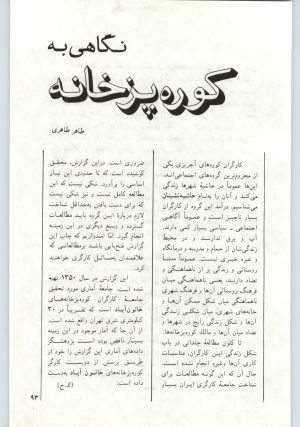 نگاهی به
کوره‌پزخانه
طاهر طاهری
کارگران کوره‌های آجرپزی یکی
از محروم‌ترین گروه‌های اجتماعی‌اند.
این‌ها عموماً در حاشیهٔ شهرها زندگی
می‌کنند و آنان را به‌نام حاشیه‌نشینان
می‌شناسیم. درآمد این گروه از کارگران
بسیار ناچیز است و عموماً آگاهی
اجتماعی ـ سیاسی بسیار کمی دارند.
آب و برق ندارند و در محیط
زندگی‌شان از حمام و مدرسه و درمانگاه
و غیره خبری نیست. عموماً منشاء
روستائی دارند. زندگی پر از ناهماهنگی و
تضاد دارند، یعنی ناهماهنگی میان
فرهنگ روستائی آن‌ها و فرهنگ شهری
ناهماهنگی میان شکل مسکن آن‌ها و
خانه‌های شهری، میان شکلی زندگی
آن‌ها و شکل زندگی رایج در شهرها و
تضاد میان آن‌ها و مالک کوره‌پزخانه.
تا کنون مطالعهٔ چندانی در باب
شکل زندگی این کارگران، مناسبات
کاری آن‌ها وغیره انجام نشده است.
حال آن که این گونه مطالعات برای
شناخت جامعهٔ کارگری ایران بسیار
ضروری است. دراین گزارش، محقق
کوشیده است که تا حدودی این نیاز
اساسی را برآورد. شکی نیست که این
مطالعه کامل نیست و نیز شکی نیست
که برای دست یافتن به‌حداقل شناخت
لازم دربارهٔ این گروه باید مطالعات
گسترده و وسیع دیگری در این زمینه
انجام گیرد. اما امیدواریم که چاپ این
گزارش فتح‌بابی باشد برمطالعاتی که
علاقمندان به‌مسائل کارگری خواهند
کرد.
این گزارش در سال ۱۳۵۰ تهیه
شده است. جامعهٔ آماری مورد تحقیق
جامعهٔ کارگران کوره‌پزخانه‌های
خاتون‌آباد است که تقریباً در ۳۰
کیلومتری شرق تهران واقع شده است.
از آن جا که آمار موجود در این زمینه
بسیار ناقص بوده است پژوهشگر
داده‌های آماری این گزارش را خود از
طریق پرسش از دوست کارگر
کوره‌پزخانه‌های خاتون آباد به‌دست
داده است:
(ک.ج)
۹۳